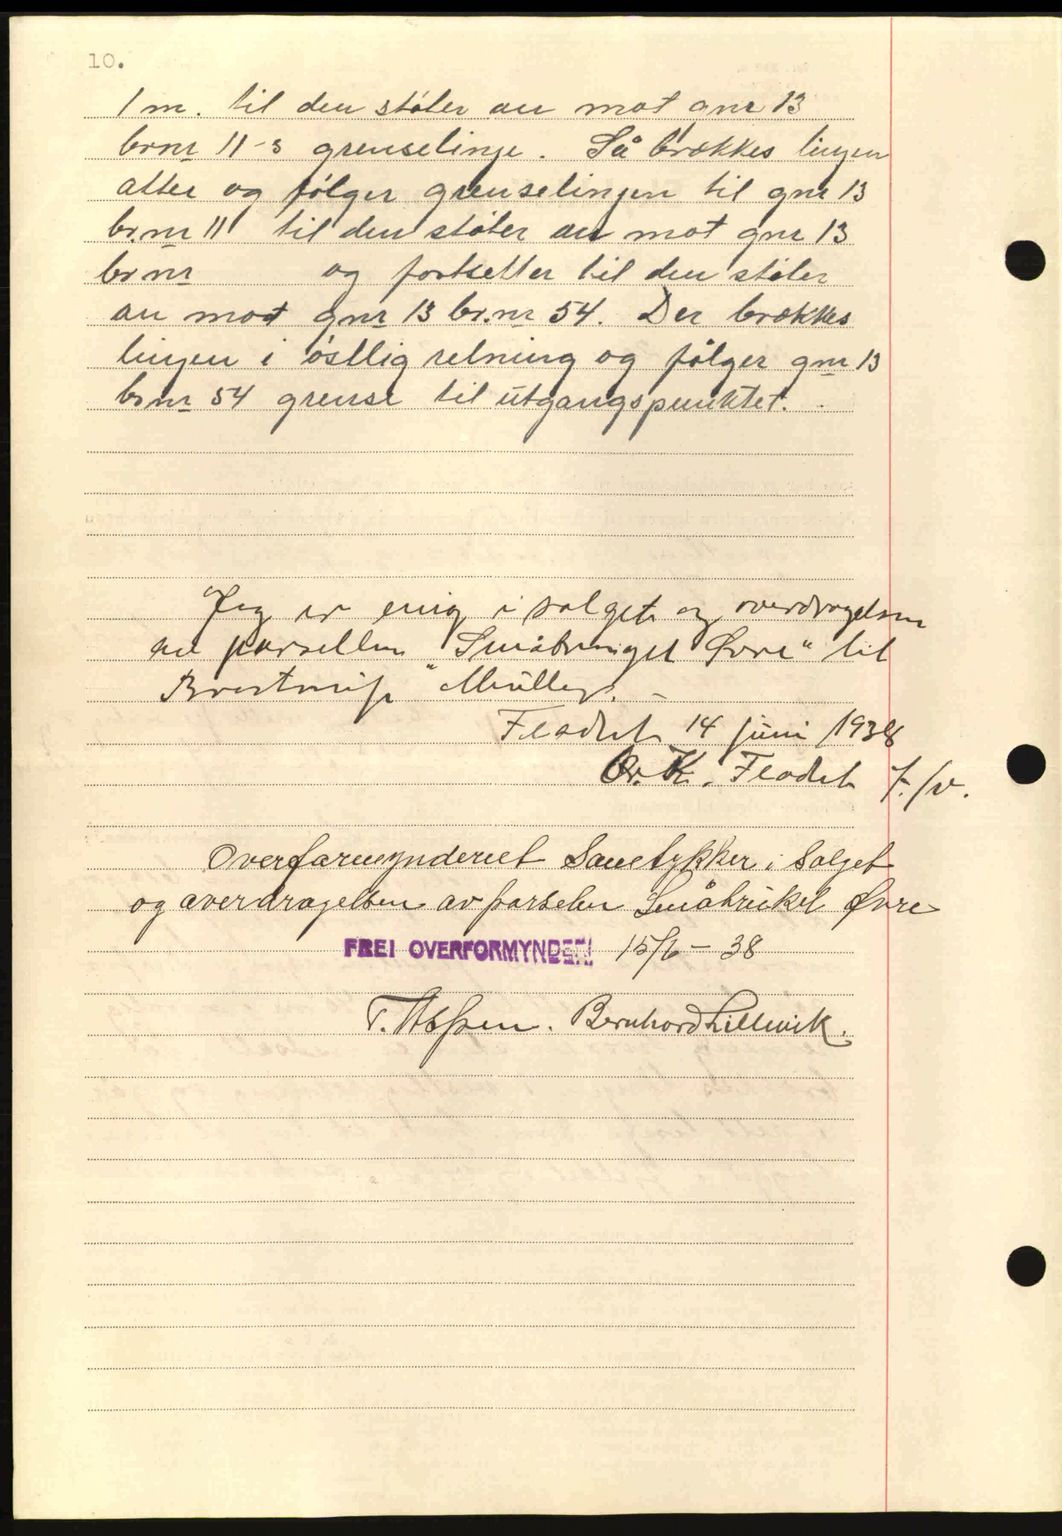 10.
1 m. til den støter an mot gnr 13
br.nr 11-s grenselinje. Så brekkes linjen
atter og følger grenselinjen til gnr 13
br.nr 11 til den støter an mot gnr 13
br.nr og fortsetter til den støter
an mot gnr 13 br.nr 54. Der brekkes
linjen i østlig retning og følger gnr 13
br.nr 54 grense til utgangspunktet.
Jeg er enig i salget og overdragelsen
av parsellen "Småbruget Øvre" til
Müller.
Fladset 14 juni 1938
K. Fladset f./v.
Overformynderiet samtykker i salget
og overdragelsen av parselen Småbruket Øvre
FREI OVERFORMYNDERI 15/6 - 38
Bernhard Lillevik.